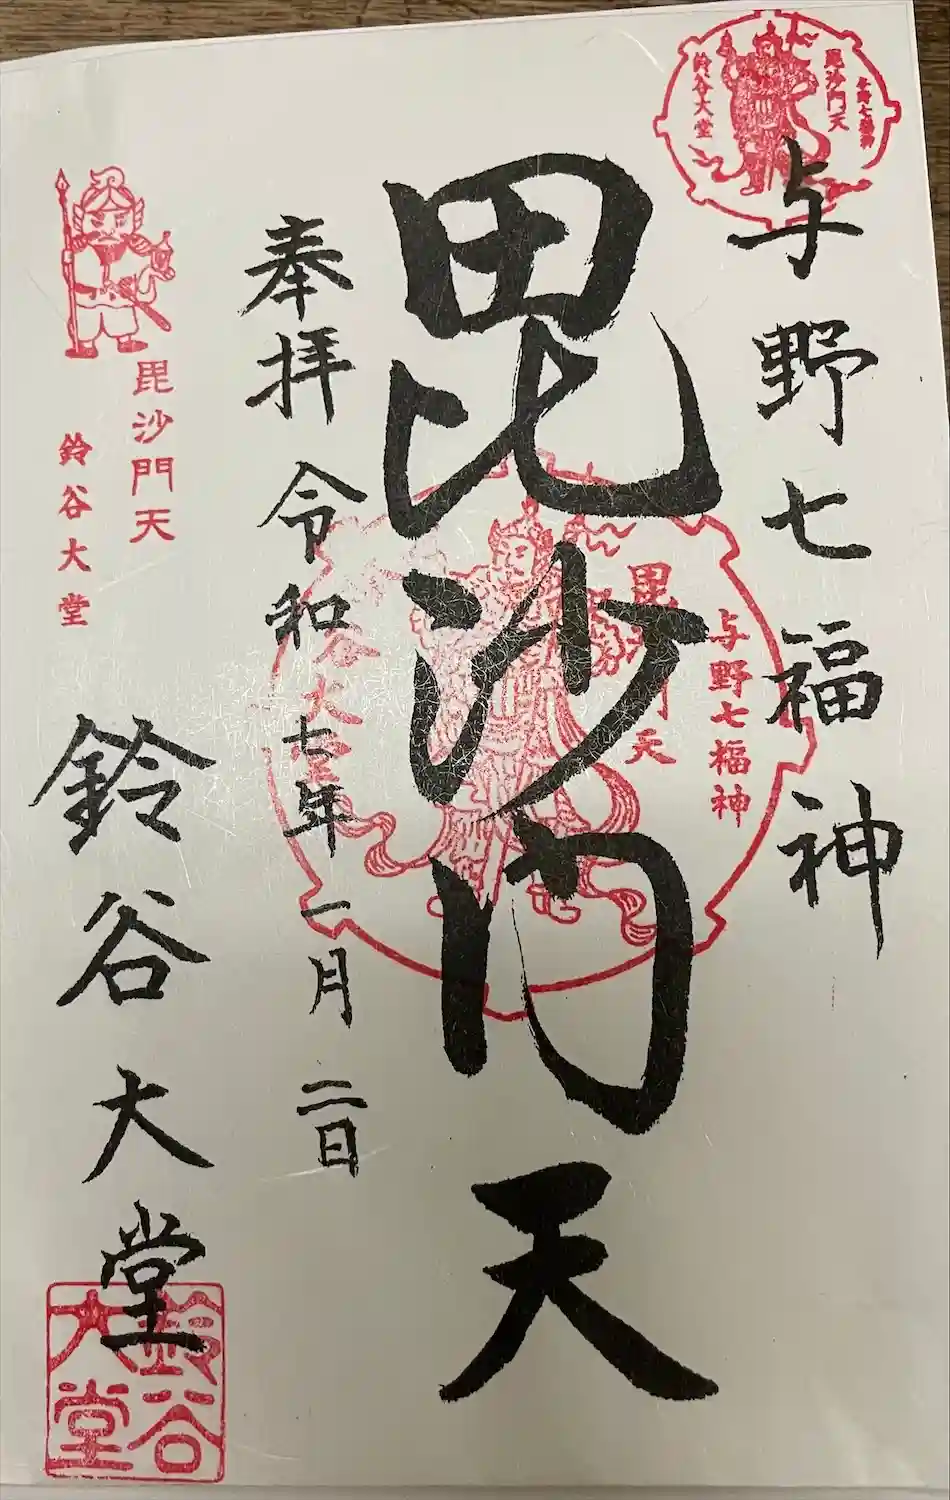 与野七福神
毘沙門天
奉拝 令和七年一月二日
鈴谷大堂
与野七福神
毘沙門天
鈴谷大堂
与野七福神
毘沙門天
谷大堂
毘沙門天
鈴谷大堂
鈴谷
大堂